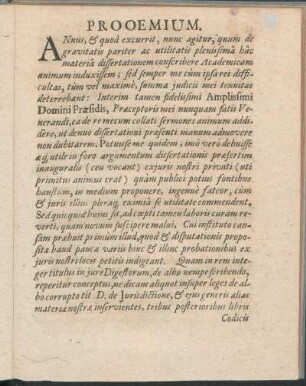 PROOEMIUM.
ANnus, & quod excurrit, nunc agitur, quum de
gravitatis pariter ac utilitatis plenissimâ hâc
materiâ dissertationem conscribere Academicam
animum induxissem; sed semper me cùm ipsa rei diffi-
cultas, tùm vel maximè, summa judicii mei tenuitas
deterrebant: Interim tamen fidelissimi Amplissimi
Domini Præsidis, Præceptoris mei nunquam satis Ve-
nerandi, ea de re mecum collati sermones animum addi-
dere, ut denuo dissertationi præsenti manum admovere
non dubitarem. Potuisse me quidem, imò verò debuisse
æq; utile in foro argumentum dissertationis præsertim
inauguralis (ceu vocant) ex juris nostri privati (uti
primitùs animus erat) quàm publici potius fontibus
haustum, in medium proponere, ingenuè fateor, cùm
& juris illius pleraq; eximiâ se utilitate commendent,
Sed quicquid hujus sit, ad cæpti tamen laboris curam re-
verti, quam novum suscipere malui. Cui instituto cau-
sam præbuit primùm illud, quod & disputationis propo-
sitæ haud pauca variis hinc & illinc probationibus ex
juris nostri locis petitis indigeant. Quam in rem inte-
ger titulus in jure Digestorum, de albo nempe scribendo,
reperitur conceptus, ne dicam aliquot insuper leges de al-
bo corrupto tit D. de Jurisdictione, & ejus generis alias
materiæ nostræ inservientes, tribus posterioribus libris
Codicis